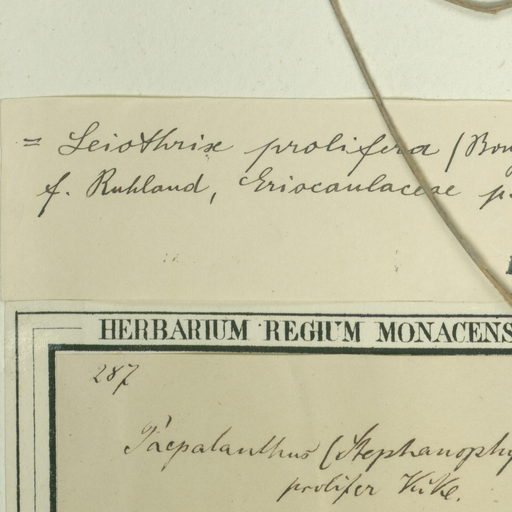 = Leiothrix prolifera (Bong
f. Ruhland, Eriocaulaceae p.
HERBARIUM REGIUM MONACENS
287
Paepalanthus (Stephanophy
prolifer Kcke.